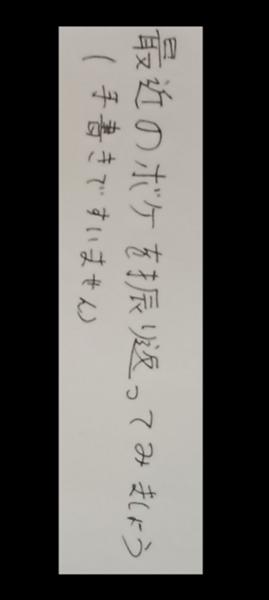 最近のボケを振り返ってみましょう
(手書きですいません)